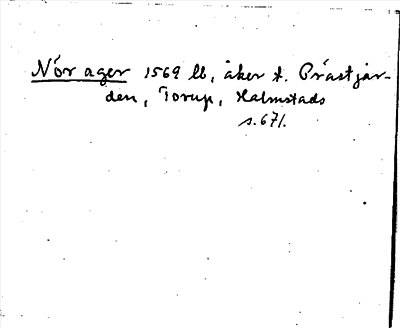 Nör ager 1569 lb, åker t. Prästjär-
den, Torup, Halmstads
s. 671.